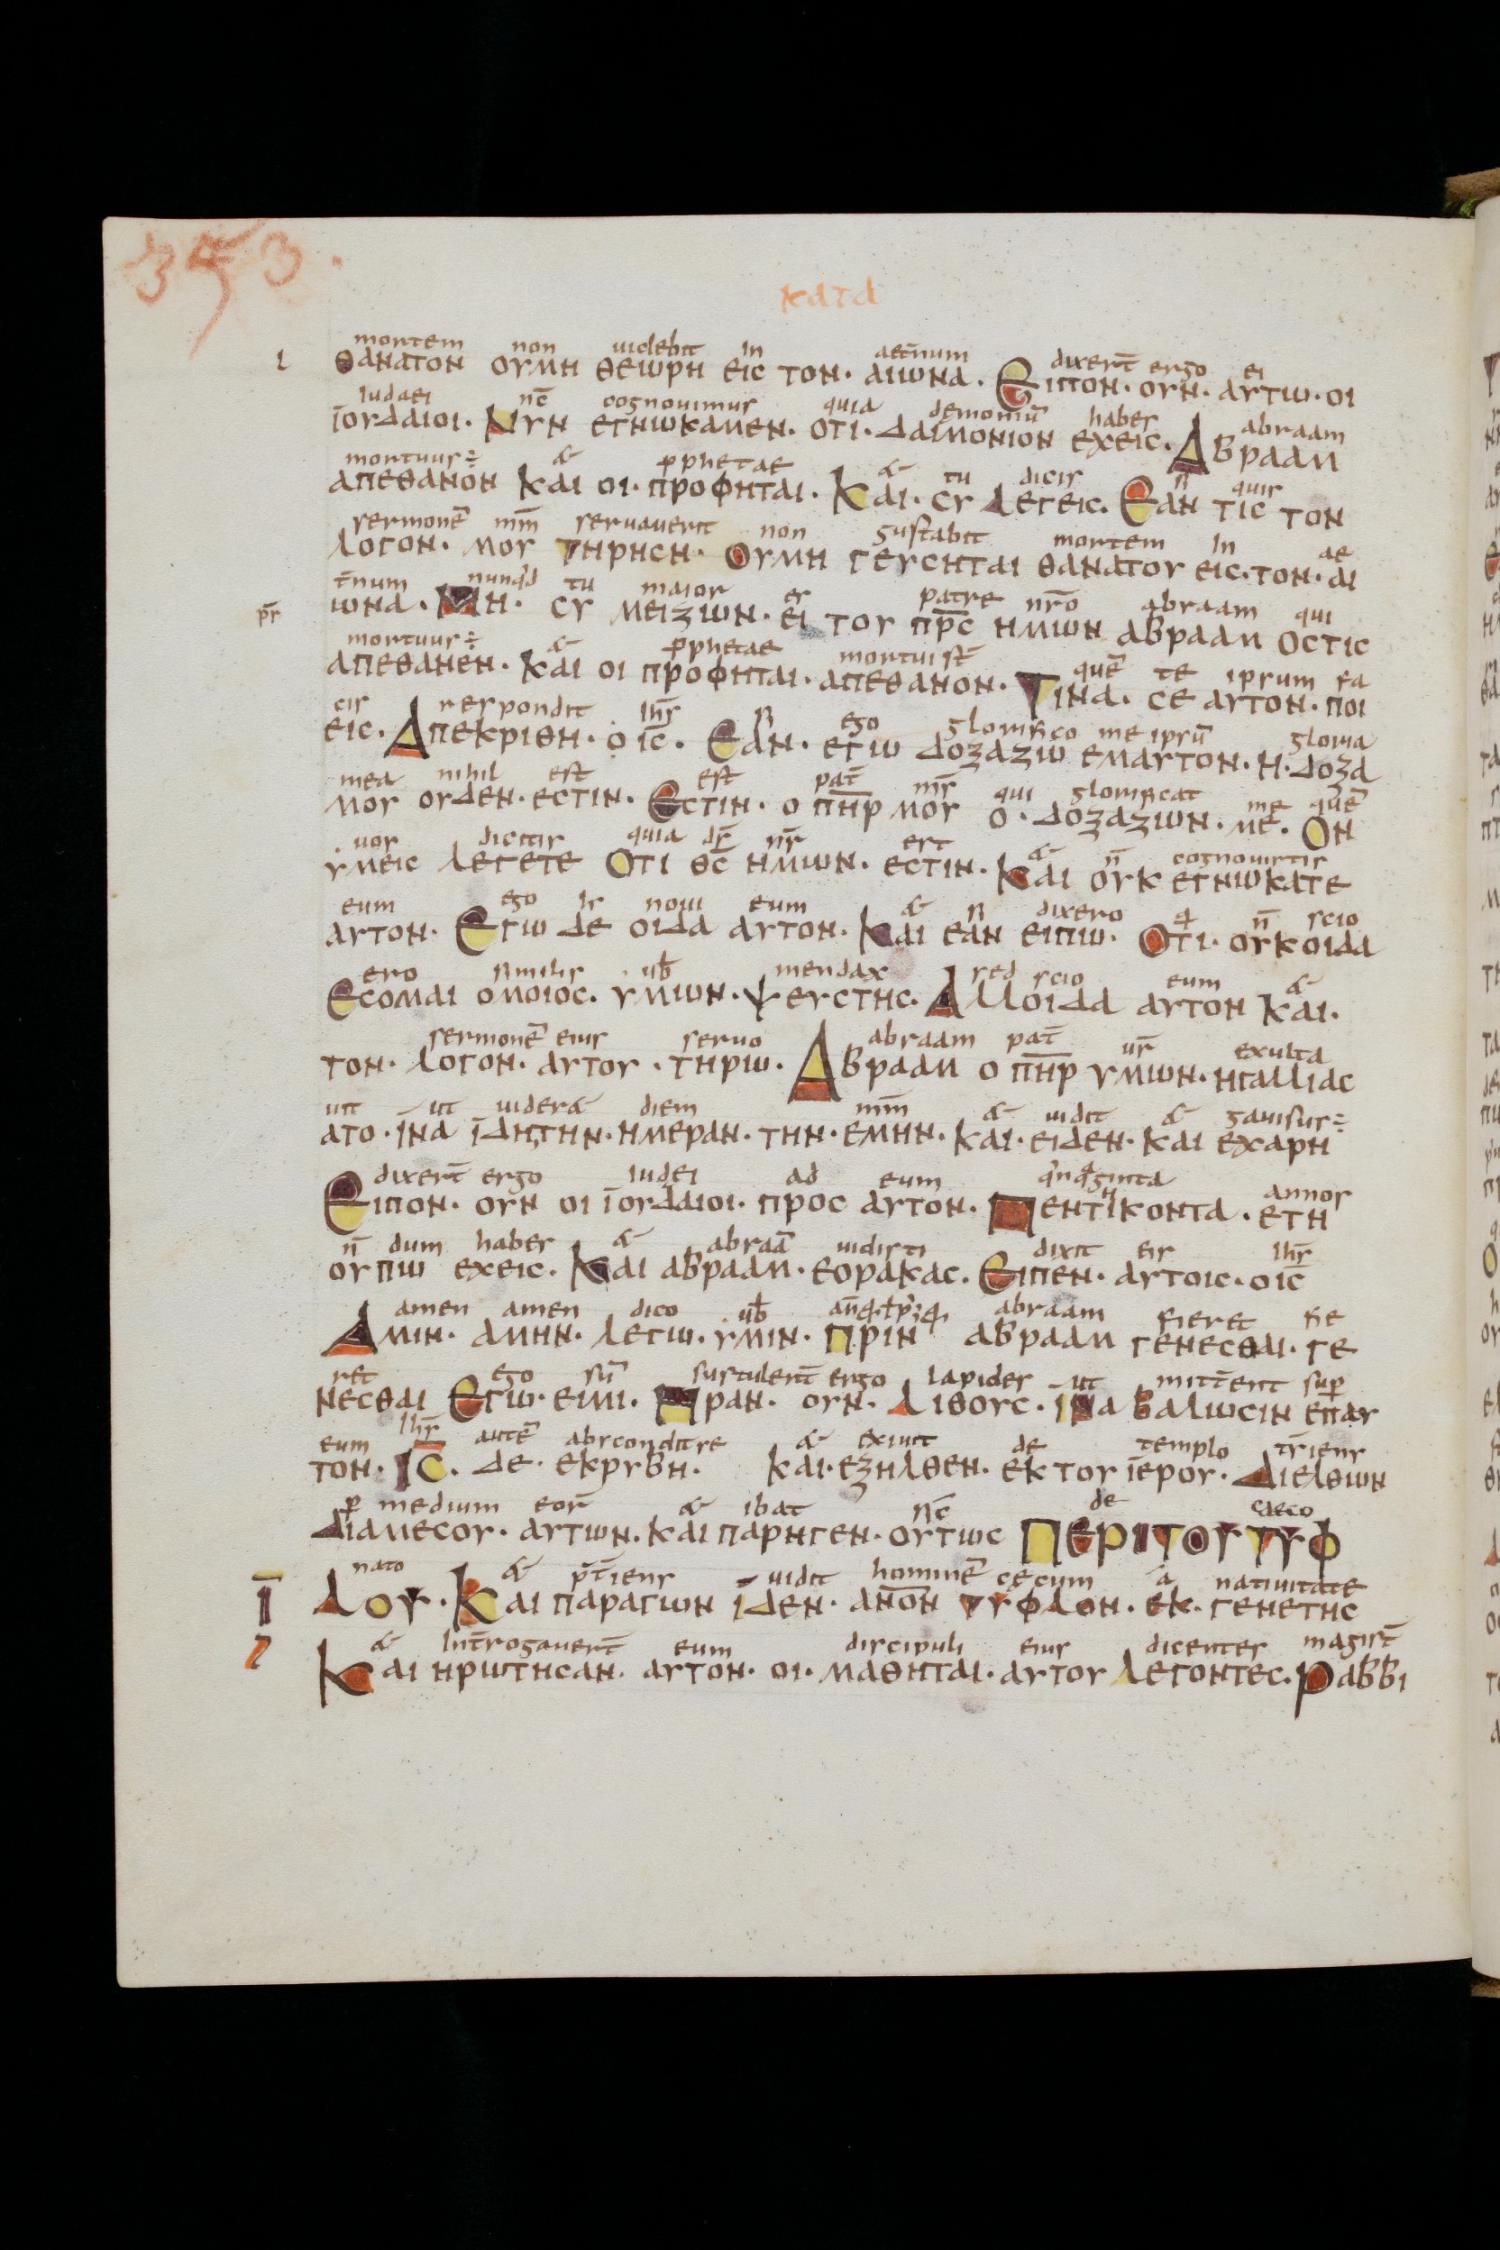 353.
κατα
mortem non uidebit in aet̄num dixer̄t ergo ei
ι θανατον ουμη θεωρη εις τον· αιωνα· Ειπον· ουν· αυτω· οι
iudaei nc̄ cognouimus quia demoniū habes abraam
ϊουδαιοι· Νυν εγνωκαμεν· οτι· δαιμονιον εχεις· Αβρααμ
mortuus÷ & p̄phetae & tu dicis si quis
απεθανον και οι· προφηται· Και· συ λεγεις· Εαν τις τον
sermonē mm̄ seruauerit non gustabit mortem in ae
λογον· μου τηρηση· Ουμη γευσηται θανατου εις· τον· αι
t̄num nunqd tu maior es patre nr̄o abraam qui
pr̄ ωνα· Μη· συ μειζων· ει του πρ̄ς ημων αβρααμ οστις
mortuus÷ & p̄phetae mortui st̄ quē te ipsum fa
απεθανεν· και οι προφηται· απεθανον· Τινα· σε αυτον· ποι
cis respondit ihs̄ si ego glorifico me ipsū gloria
εις· Απεκριθη· ο ις̄· Εαν· εγω δοξαζω εμαυτον· η· δοξα
mea nihil est est pat̄ ms̄ qui glorificat me quē
μου ουδεν· εστιν· Εστιν· ο πη̄ρ μου ο· δοξαζων· με· Ον
uos dicitis quia ds̄ nr̄ est & n̄ cognouistis
υμεις λεγετε Οτι θς̄ ημων· εστιν· Και ουκ εγνωκατε
eum ego noui eum & si dixero n̄ scio
αυτον· Εγω δε οιδα αυτον· Και εαν ειπω· Οτι· ουκ οιδα
ero similis ub̄ mendax sed scio eum &
Εσομαι ομοιος· υμων· ψευστης· Αλλοιδα αυτον και·
sermonē eius seruo abraam pat̄ ur̄ exulta
τον· λογον· αυτου· τηρω· Αβρααμ ο πη̄ρ υμων· ηγαλλιας
uit ut uider& diem mm̄ & uidit & gauisus÷
ατο· ϊνα ϊδητην· ημεραν· την· εμην· και· ειδεν· και εχαρη
dixer̄t ergo iudei ad eum annos
Ειπον· ουν οι ϊουδαιοι· προς αυτον· Πεντηκοντα· ετη
n̄ dum habes & abraā uidisti dixit eis ihs̄
ουπω εχεις· Και αβρααμ· εορακας· Ειπεν· αυτοις· οις̄
amen amen dico ub̄ abraam fieret fie
Αμιν· αμην· λεγω· υμιν· Πριν αβρααμ γενεσθαι· γε
ret ego sū sustuler̄t ergo lapides ut mitt̄ent sup̄
νεσθαι Εγω· ειμι· Ηραν· ουν· Λιθους· ϊνα βαλωσιν επαυ
eum ihs̄ autē abscondit se & exiuit de templo t̄riens
τον· Ις̄· δε· εκρυβη· και· εξηλθεν· εκ του ϊερου· Διελθων
p̄ medium eor̄ & ibat sic̄ de caeco
διαμεσου· αυτων· και παρηγεν· ουτως Περιτουτυφ
nato & p̄t̄iens uidit hominē cecum a natiuitate
ῑ λου· Και παραγων ϊδεν· ανο̄ν τυφλον· εκ· γενετης
& int̄rogauer̄t eum discipuli eius dicentes magist̄
Και ηρωτησαν· αυτον· οι· μαθηται· αυτου Λεγοντες· Ραββι